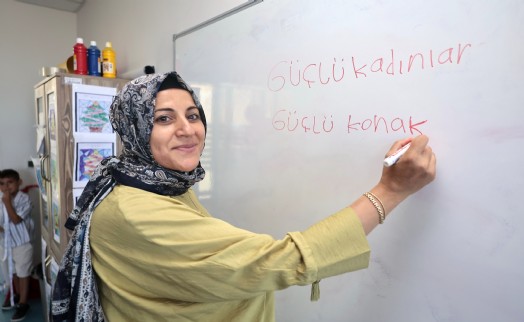 GÜÇLÜ kadınlar
GÜÇLÜ konak